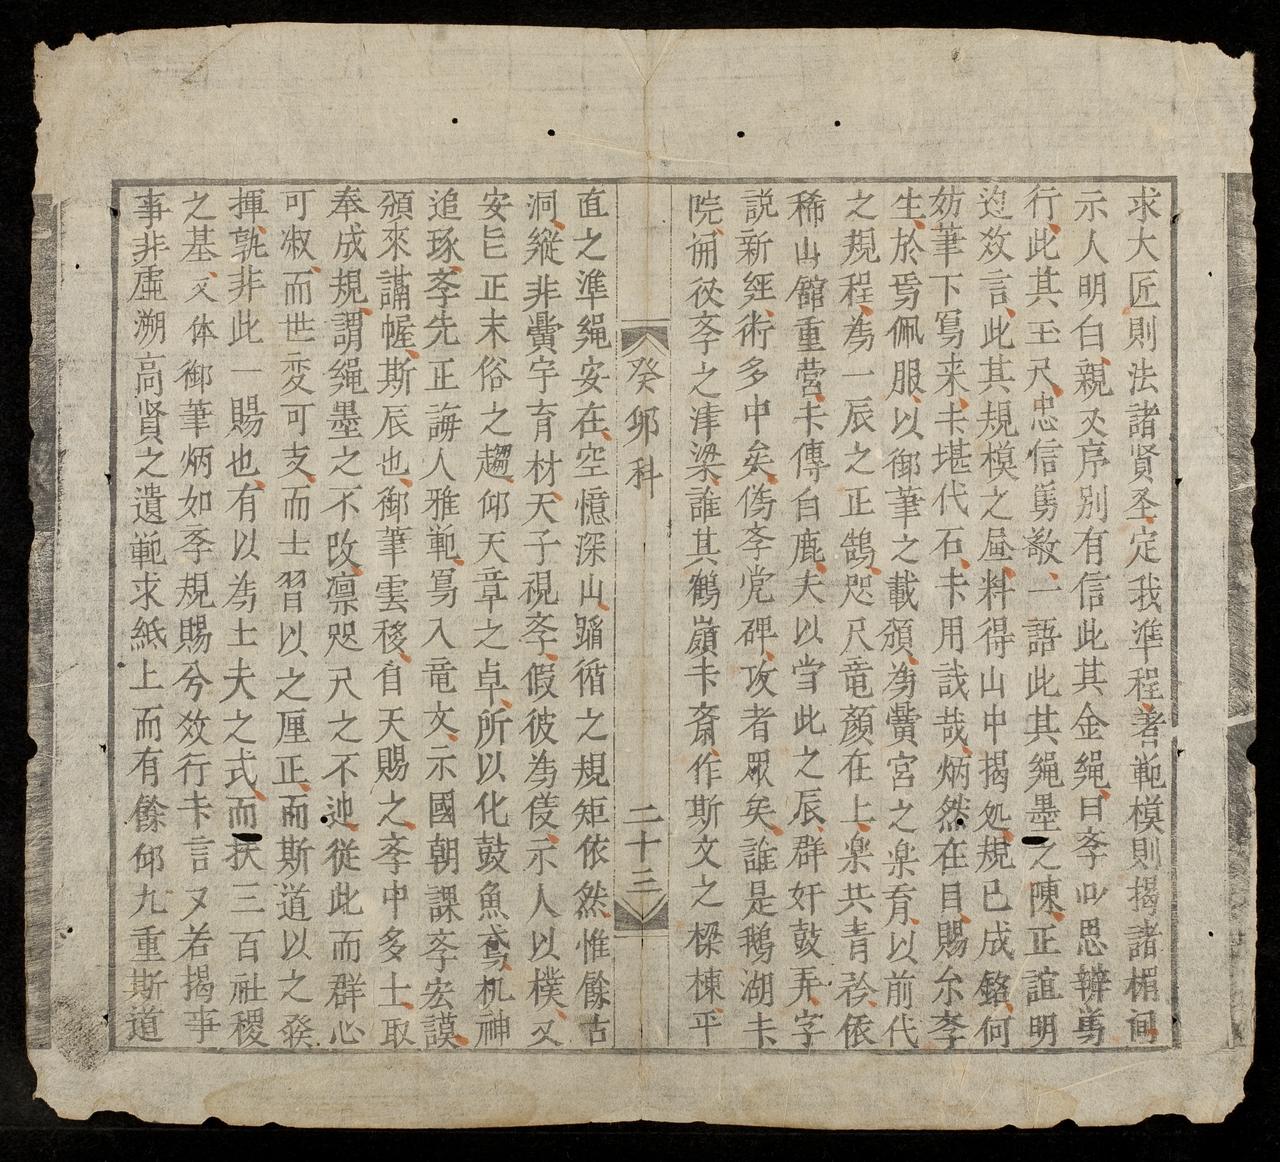 求大匠則法諸賢圣定我準程著範模則揭諸楣间
示人明白親义序別有信此其金繩曰斈叩思辨勇
行此其玉尺忠信篤敬一語此其繩墨之陳正誼明
迨效言此其規模之屆料得山中揭処規已成盤何
妨筆下寫来卡堪代石卡用哉哉炳然在目賜尒斈
生於焉佩服以御筆之載頒為黌宮之楽育以前代
之規程為一辰之正鵠咫尺竜顏在上楽共青衿依
稀山館重营卡傳白鹿夫以当此之辰群奸鼓弄字
説新經術多中矣偽斈党碑攻者眾矣誰是鵝湖卡
院開従斈之津梁誰其鶴嶺卡斎作斯文之樑棟平
癸卯科
二十三
直之準繩安在空憶深山蹈循之規矩依然惟餘古
洞縱非黌宇育材天子視斈假彼為侯示人以樸又
安㠯正末俗之趨仰天章之卓所以化鼓魚鳶机神
追琢斈先正誨人雅範寫入竜文示國朝課斈宏謨
頒來講幄斯辰也御筆雲移自天賜之斈中多士取
奉成規謂繩墨之不改凛咫尺之不迆従此而群心
可淑而世变可支而士習以之厘正而斯道以之發
揮孰非此一賜也有以為士夫之式而扶三百社稷
之基又体御筆炳如斈規賜兮效行卡言又若揭事
事非虛溯高賢之遺範求紙上而有餘仰九重斯道